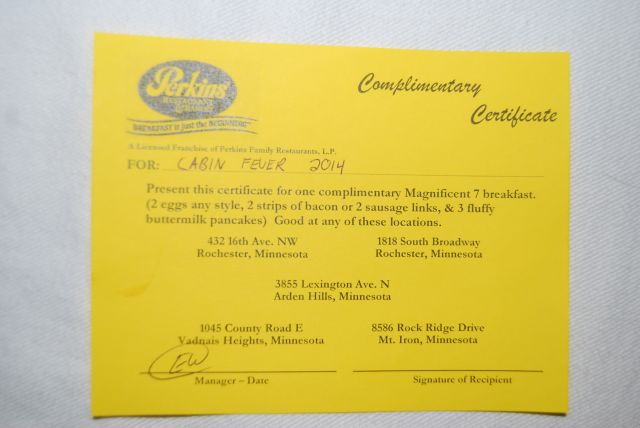 Perkins
RESTAURANT
& BAKERY
BREAKFAST is just the BEGINNING
Complimentary
Certificate
A Licensed Franchise of Perkins Family Restaurants, L.P.
FOR: CABIN FEVER 2014
Present this certificate for one complimentary Magnificent 7 breakfast.
(2 eggs any style, 2 strips of bacon or 2 sausage links, & 3 fluffy
buttermilk pancakes) Good at any of these locations.
432 16th Ave. NW 1818 South Broadway
Rochester, Minnesota Rochester, Minnesota
3855 Lexington Ave. N
Arden Hills, Minnesota
1045 County Road E 8586 Rock Ridge Drive
Vadnais Heights, Minnesota Mt. Iron, Minnesota
EW
Manager – Date Signature of Recipient